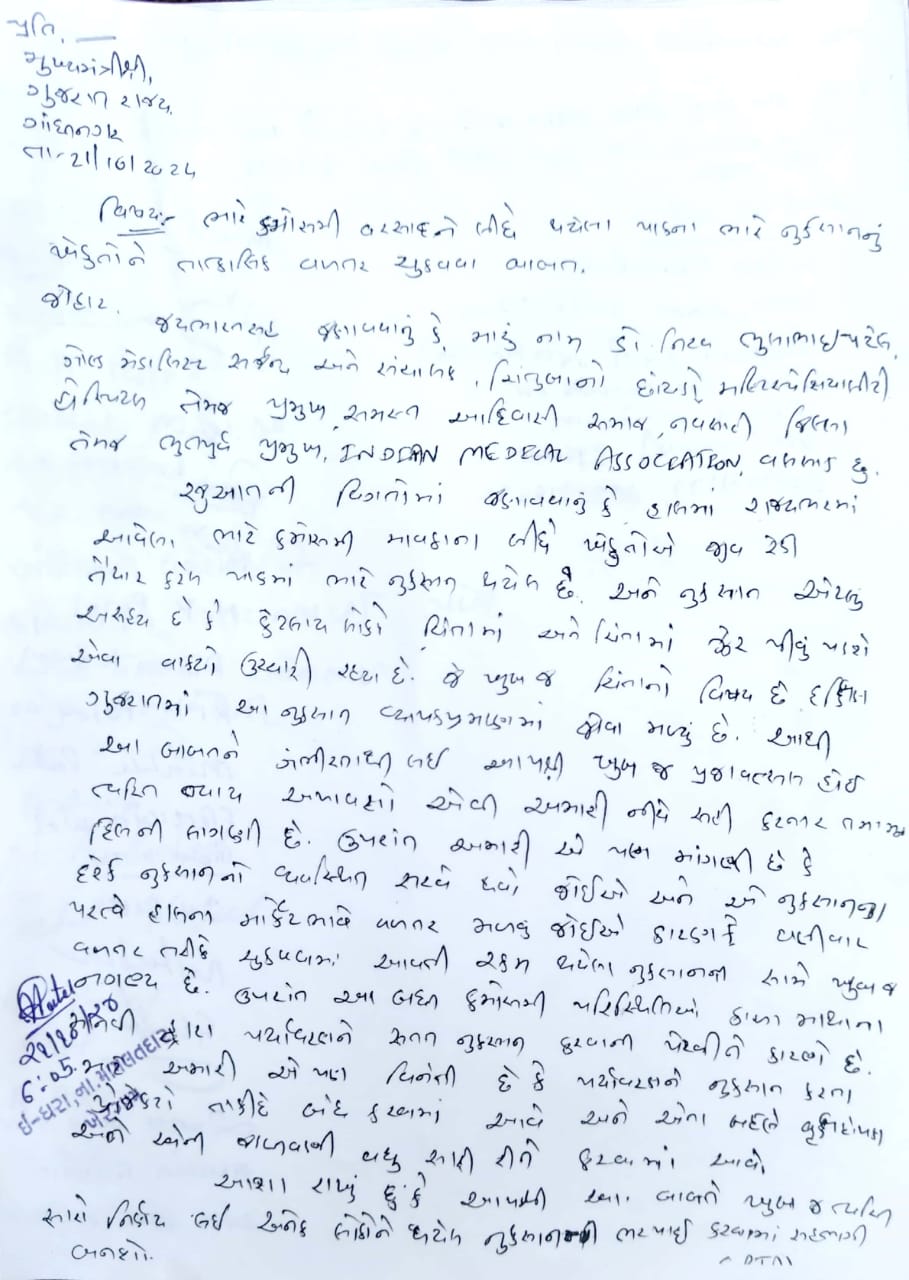 પ્રતિ,
મુખ્યમંત્રીશ્રી,
ગુજરાત રાજ્ય,
ગાંધીનગર
તા- 21/10/2024
વિષય:- ભારે કમોસમી વરસાદને લીધે થયેલા પાકના ભારે નુકસાનનું
ખેડુતોને તાત્કાલિક વળતર ચુકવવા બાબત.
જોહાર.
જયભારતસહ જણાવવાનું કે મારું નામ ડો. નિરવ ભુલાભાઇ પટેલ,
ગોલ્ડ મેડાલિસ્ટ સર્જન અને સંચાલક, ચિંતુબાનો છાંયડો મલ્ટિસ્પેશિયાલીટી
હોસ્પિટલ તેમજ પ્રમુખ, સમસ્ત આદિવાસી સમાજ, નવસારી જિલ્લા
તેમજ ભુતપુર્વ પ્રમુખ, INDIAN MEDICAL ASSOCIATION, વલસાડ છું.
રજુઆતની વિગતોમાં જણાવવાનું કે હાલમાં રાજ્યભરમાં
આવેલા ભારે કમોસમી માવઠાના લીધે ખેડુતોએ જીવ રેડી
તૈયાર કરેલ પાકમાં ભારે નુકસાન થયેલ છે. અને નુકસાન એટલું
અસહ્ય છે કે કેટલાય લોકો ચિંતામાં અને ચિંતામાં ઝેર પીવું પડશે
એવા વાક્યો ઉચ્ચારી રહ્યા છે. જે ખુબ જ ચિંતાનો વિષય છે. દક્ષિણ
ગુજરાતમાં આ નુકસાન વ્યાપકપ્રમાણમાં જોવા મળ્યું છે. આથી
આ બાબતને ગંભીરતાથી લઇ આપશ્રી ખુબ જ પ્રજાવત્સલ હોઇ
ત્વરિત ન્યાય અપાવશો એવી અમારી નીચે સહી કરનાર તમામ
દિલની લાગણી છે. ઉપરાંત અમારી એ પણ માંગણી છે કે
દરેક નુકસાનનો વ્યવસ્થિત સરવે થવો જોઈએ અને એ નુકસાનના
પરત્વે હાલના માર્કેટભાવે વળતર મળવું જોઈએ કારણકે ઘણીવાર
વળતર તરીકે ચુકવવામાં આવતી રકમ થયેલા નુકસાનની સામે ખુબ જ
નગણ્ય છે. ઉપરાંત આ બધી કમોસમી પરિસ્થિતિઓ કાળા માથાના
માનવી દ્વારા પર્યાવરણને સતત નુકસાન કરવાની પેરવીને કારણે છે.
અમારી એ પણ વિનંતી છે કે પર્યાવરણને નુકસાન કરતા
પ્રોજેક્ટો તાકીદે બંધ કરવામાં આવે અને એના બદલે વૃક્ષારોપણ
અને એની જાળવણી વધુ સારી રીતે કરવામાં આવે.
આશા રાખું છું કે આપશ્રી આ બાબતે ખુબ જ ત્વરિત
સારો નિર્ણય લઇ અનેક લોકોને થયેલ નુકસાનની ભરપાઇ કરવામાં સહભાગી
બનશો.
Patel
22/10/24
6:05
ઇ-ધરા, ના.મામલતદાર
ખેરગામ